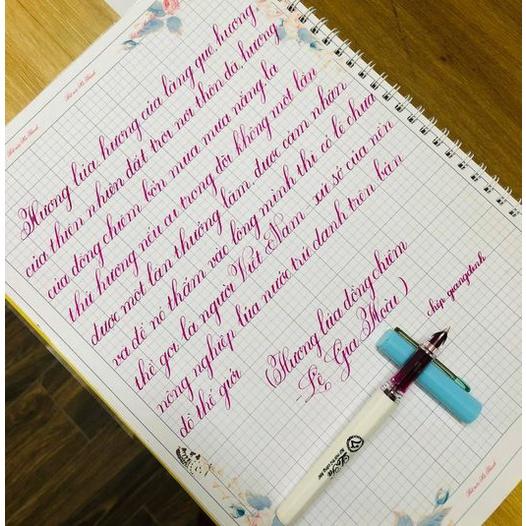 Hương lúa, hương của làng quê, hương
của thiên nhiên đất trời nơi thôn dã, hương
của đồng chiêm bốn mùa mưa nắng, là
thứ hương nếu ai trong đời không một lần
được một lần thưởng lãm, được cảm nhận
và để nó thấm vào lòng mình thì có lẽ chưa
thể gọi là người Việt Nam - xứ sở của nền
nông nghiệp lúa nước trứ danh trên bản
đồ thế giới
(Hương lúa đồng chiêm
- Lê Gia Hoài)
chép: quangdinh